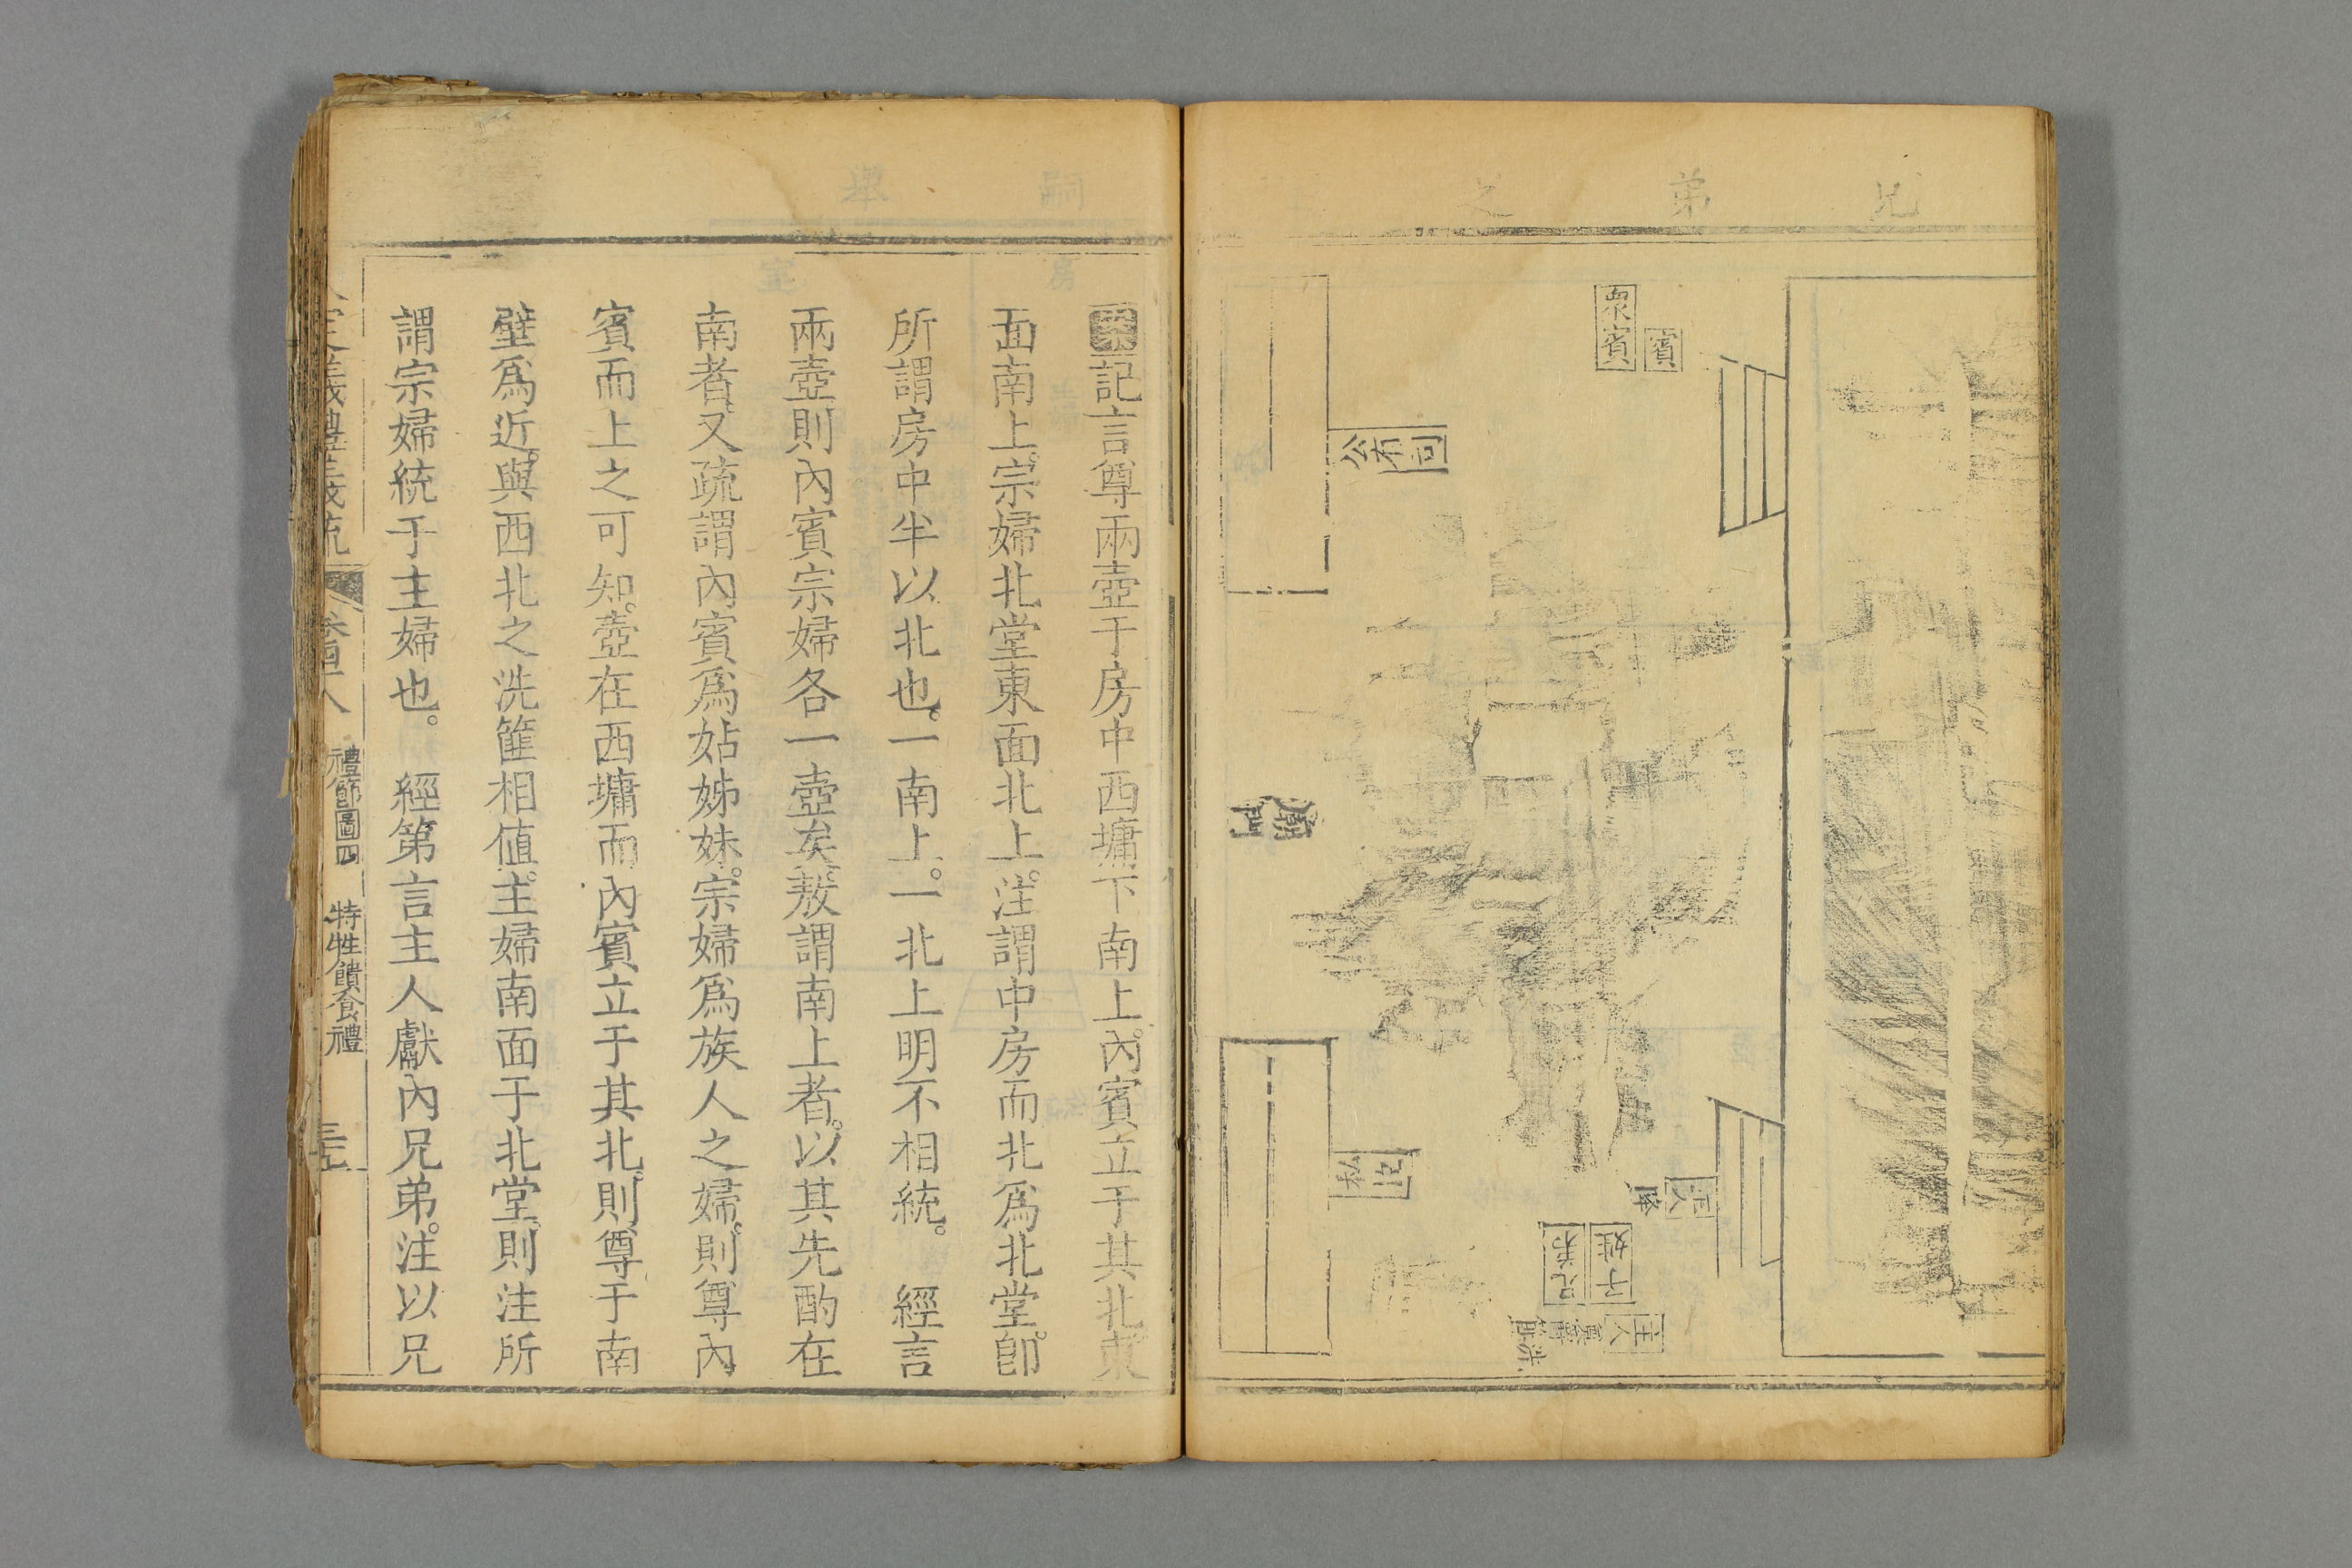 兄弟之
衆賓
賓
公有司
廟門
私臣
子姓
兄弟
主人
案記言尊兩壺于房中西墉下南上內賓立于其北東
面南上宗婦北堂東面北上注謂中房而北爲北堂卽
所謂房中半以北也一南上一北上明不相統 經言
兩壺則內賓宗婦各一壺矣敖謂南上者以其先酌在
南者又疏謂內賓爲姑姊妹宗婦爲族人之婦則尊內
賓而上之可知壺在西墉而內賓立于其北則尊于南
壁爲近與西北之洗篚相值主婦南面于北堂則注所
謂宗婦統于主婦也 經第言主人獻內兄弟注以兄
禮節圖四 特牲饋食禮